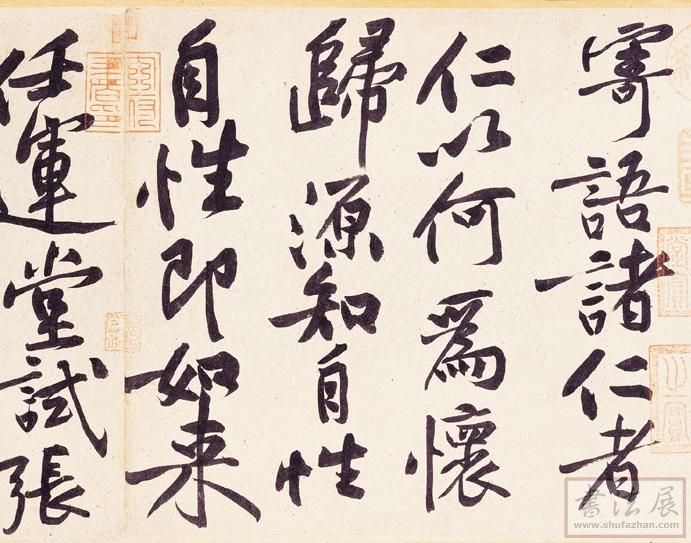 寄語諸仁者
仁以何爲懷
歸源知自性
自性即如来
任運堂試張
書法展
www.shufazhan.com